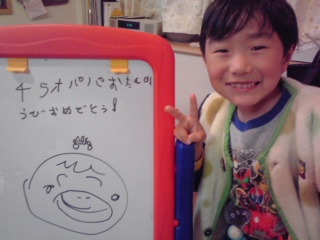 チラオパパおたんじょ
うびおめでとう!